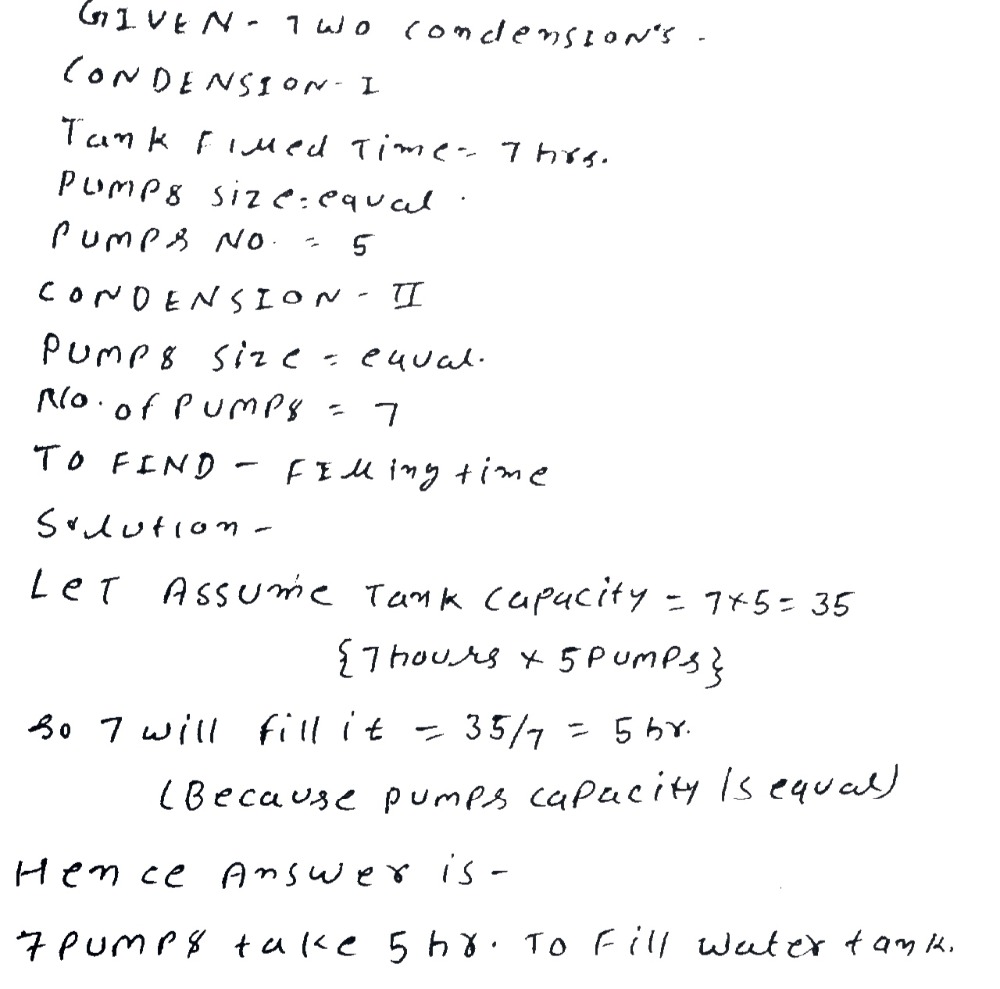 GIVEN - Two condension's.
CONDENSION - I
Tank Filled Time = 7 hrs.
Pumps size = equal.
Pumps No. = 5
CONDENSION - II
Pumps size = equal.
No. of Pumps = 7
TO FIND - FIlling time
Solution -
LeT Assume Tank capacity = 7×5 = 35
{7 hours × 5 Pumps}
so 7 will fill it = 35/7 = 5 hr.
(Because pumps capacity Is equal)
Hence Answer is -
7 Pumps take 5 hr. To Fill water tank.